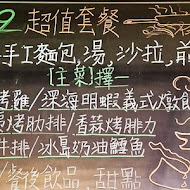 2 超值套餐
手工麵包,湯,沙拉,前
〔主菜〕擇一
烤雞/深海明蝦義式燉飯
烤肋排/香蒜烤腓力
牛排/冰島奶油鱈魚
餐後飲品,甜點